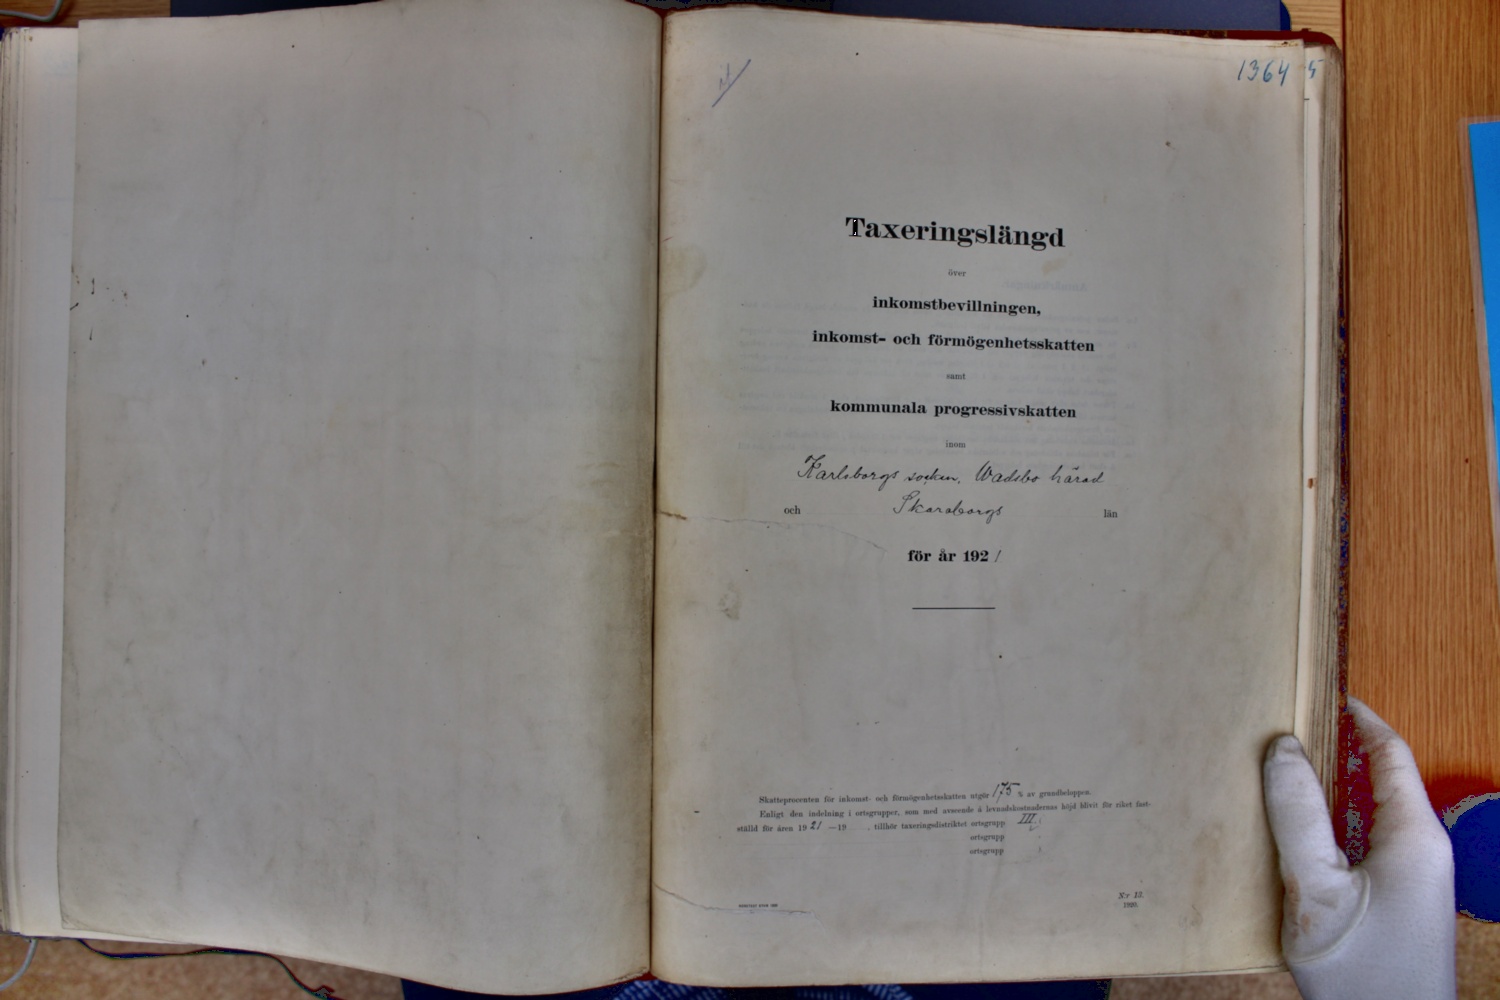 1364 5
Taxeringslängd
över
inkomstbevillningen,
inkomst- och förmögenhetsskatten
samt
kommunala progressivskatten
inom
Karlsborgs socken, Wadsbo härad
och Skaraborgs län
för år 1921
Skatteprocenten för inkomst- och förmögenhetsskatten utgör 175 % av grundbeloppen.
Enligt den indelning i ortsgrupper, som med avseende å levnadskostnadernas höjd blivit för riket fast-
ställd för åren 1921—19 , tillhör taxeringsdistriktet ortsgrupp III
ortsgrupp
ortsgrupp
N:r 13.
1920.